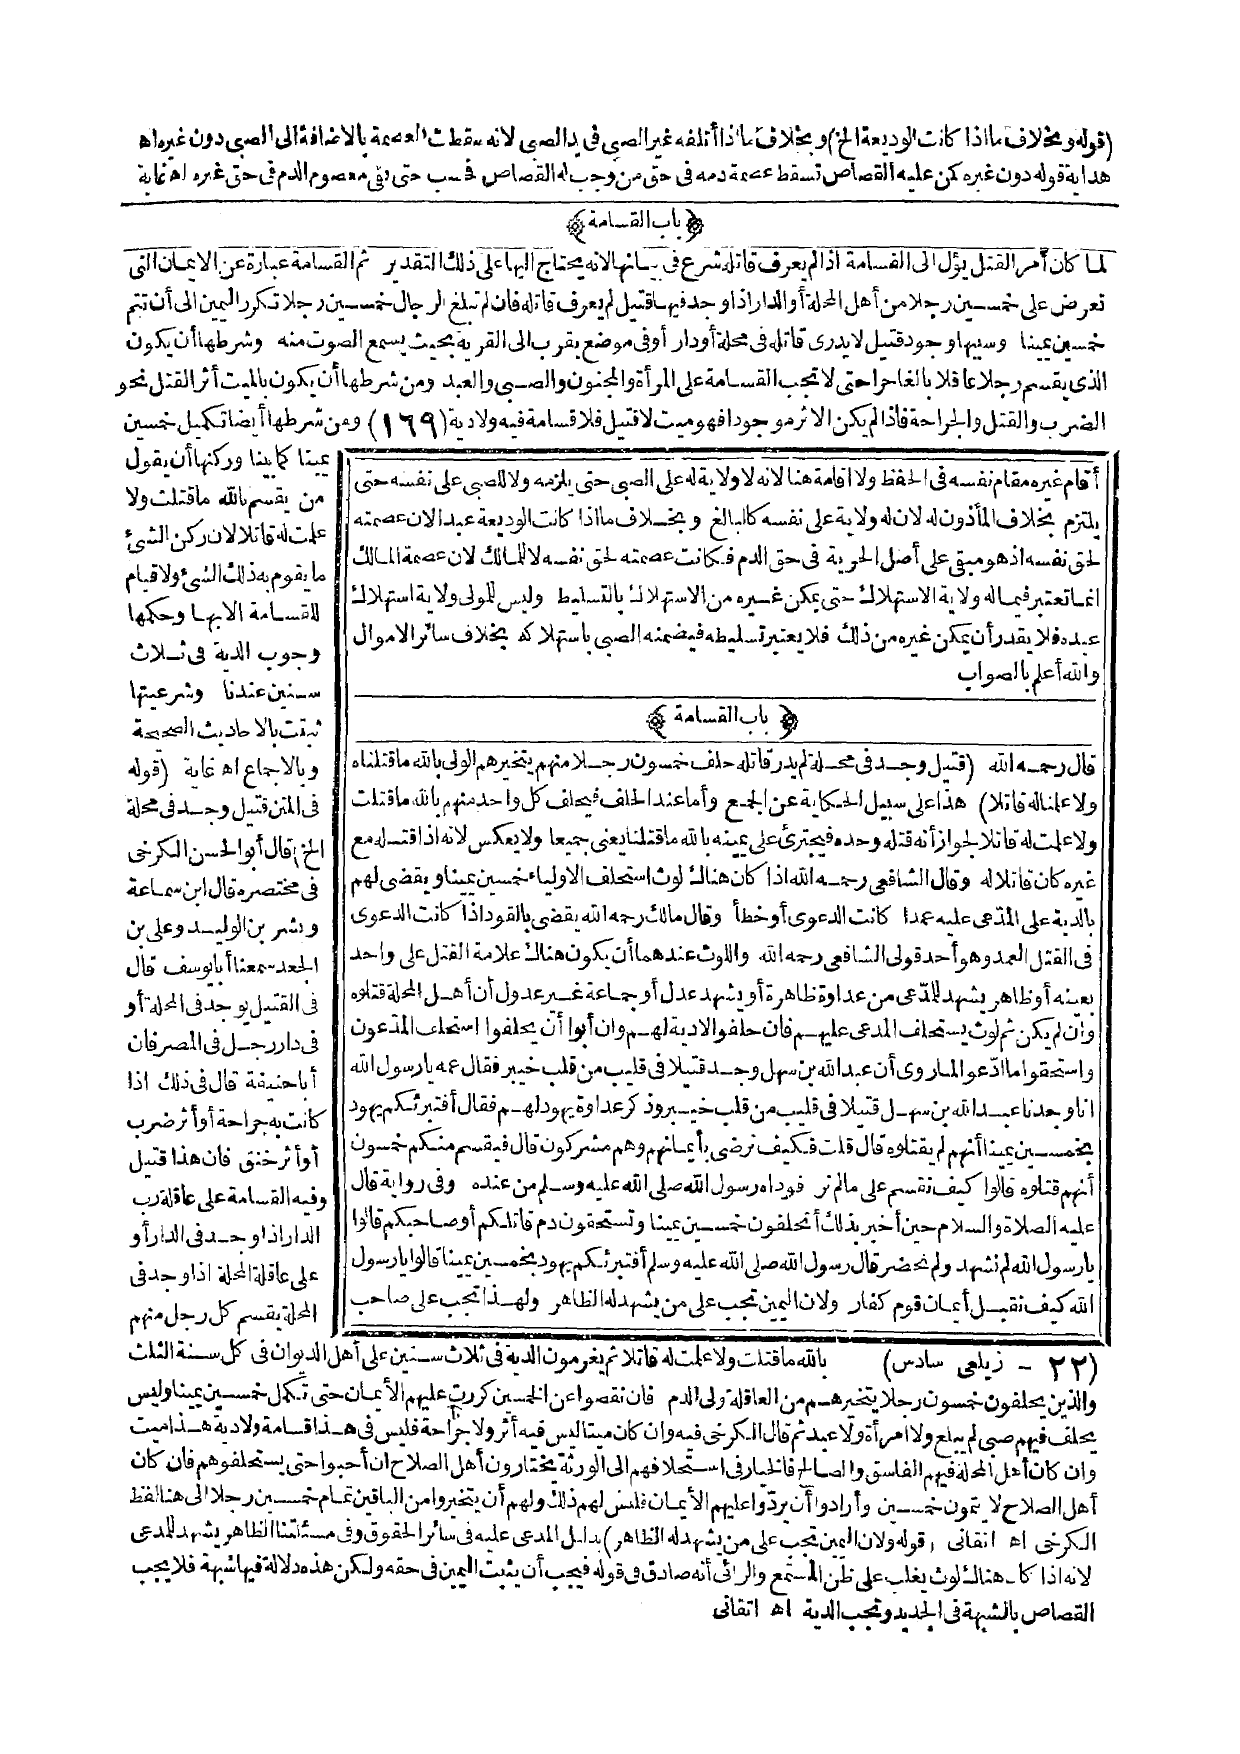 (قوله وبخلاف ما اذا كانت الوديعة الخ) وبخلاف ما اذا أتلفه غير الصبى فى يد الصبى لانه سقطت العصمة بالاضافة الى الصبى دون غيره اه
هداية قوله دون غيره كمن عليه القصاص تسقط عصمة دمه فى حق من وجب له القصاص فحسب حتى بقى معصوم الدم فى حق غيره اه غاية
﴿باب القسامة﴾
لما كان أمر القتل يؤل الى القسامة اذا لم يعرف قاتله شرع فى بيانها لانه يحتاج اليها على ذلك التقدير ثم القسامة عبارة عن الايمان التى
تعرض على خمسين رجلا من أهل المحلة أو الدار اذا وجد فيها قتيل لم يعرف قاتله فان لم تبلغ الرجال خمسين رجلا تكرر اليمين الى أن تتم
خمسين يمينا وسببها وجود قتيل لا يدرى قاتله فى محلة أو دار أو فى موضع يقرب الى القرية بحيث يسمع الصوت منه وشرطها أن يكون
الذى يقسم رجلا عاقلا بالغا حرا حتى لا تجب القسامة على المرأة والمجنون والصبى والعبد ومن شرطها أن يكون بالميت أثر القتل نحو
الضرب والقتل والجراحة فاذا لم يكن الاثر موجودا فهو ميت لا قتيل فلا قسامة فيه ولا دية (١٦٩) ومن شرطها أيضا تكميل خمسين
يمينا كما بينا وركنها أن يقول
من يقسم بالله ما قتلت ولا
علمت له قاتلا لان ركن الشئ
ما يقوم به ذلك الشئ ولا قيام
للقسامة الا بها وحكمها
وجوب الدية فى ثلاث
سنين عندنا وشرعيتها
ثبتت بالاحاديث الصحيحة
وبالاجماع اه غاية (قوله
فى المتن قتيل وجد فى محلة
الخ) قال أبو الحسن الكرخى
فى مختصره قال ابن سماعة
وبشر بن الوليد وعلى بن
الجعد سمعنا أبا يوسف قال
فى القتيل يوجد فى المحلة أو
فى دار رجل فى المصر فان
أبا حنيفة قال فى ذلك اذا
كانت به جراحة أو أثر ضرب
أو أثر خنق فان هذا قتيل
وفيه القسامة على عاقلة رب
الدار اذا وجد فى الدار أو
على عاقلة المحلة اذا وجد فى
المحلة يقسم كل رجل منهم
أقام غيره مقام نفسه فى الحفظ ولا اقامة هنا لانه لا ولاية له على الصبى حتى يلزمه ولا للصبى على نفسه حتى
يلتزم بخلاف المأذون له لان له ولاية على نفسه كالبالغ وبخلاف ما اذا كانت الوديعة عبدا لان عصمته
لحق نفسه اذ هو مبقى على أصل الحرية فى حق الدم فكانت عصمته لحق نفسه لا للمالك لان عصمة المالك
انما تعتبر فيما له ولاية الاستهلاك حتى يمكن غيره من الاستهلاك بالتسليط وليس للمولى ولاية استهلاك
عبده فلا يقدر أن يمكن غيره من ذلك فلا يعتبر تسليطه فيضمنه الصبى باستهلاكه بخلاف سائر الاموال
والله أعلم بالصواب
﴿باب القسامة﴾
قال رحمه الله (قتيل وجد فى محلة لم يدر قاتله حلف خمسون رجلا منهم يتخيرهم الولى بالله ما قتلناه
ولا علمنا له قاتلا) هذا على سبيل الحكاية عن الجمع وأما عند الحلف فيحلف كل واحد منهم بالله ما قتلت
ولا علمت له قاتلا لجواز أنه قتله وحده فيجترئ على يمينه بالله ما قتلنا يعنى جميعا ولا يعكس لانه اذا قتله مع
غيره كان قاتلا له وقال الشافعى رحمه الله اذا كان هناك لوث استحلف الاولياء خمسين يمينا ويقضى لهم
بالدية على المدعى عليه عمدا كانت الدعوى أو خطأ وقال مالك رحمه الله يقضى بالقود اذا كانت الدعوى
فى القتل العمد وهو أحد قولى الشافعى رحمه الله واللوث عندهما أن يكون هناك علامة القتل على واحد
بعينه أو ظاهر يشهد للمدعى من عداوة ظاهرة أو يشهد عدل أو جماعة غير عدول أن أهل المحلة قتلوه
وان لم يكن ثم لوث يستحلف المدعى عليهم فان حلفوا لا دية لهم وان أبوا أن يحلفوا استحلف المدعون
واستحقوا ما ادعوا لما روى أن عبد الله بن سهل وجد قتيلا فى قليب من قلب خيبر فقال عمه يا رسول الله
انا وجدنا عبد الله بن سهل قتيلا فى قليب من قلب خيبر وذكر عداوة يهود لهم فقال أفتبرئكم يهود
بخمسين يمينا أنهم لم يقتلوه قال قلت فكيف نرضى بأيمانهم وهم مشركون قال فيقسم منكم خمسون
أنهم قتلوه قالوا كيف نقسم على ما لم نر فوداه رسول الله صلى الله عليه وسلم من عنده وفى رواية قال
عليه الصلاة والسلام حين أخبر بذلك أتحلفون خمسين يمينا وتستحقون دم قاتلكم أو صاحبكم قالوا
يا رسول الله لم نشهد ولم نحضر قال رسول الله صلى الله عليه وسلم أفتبرئكم يهود بخمسين يمينا قالوا يا رسول
الله كيف نقبل أيمان قوم كفار ولان اليمين تجب على من يشهد له الظاهر ولهذا تجب على صاحب
(٢٢ - زيلعى سادس) بالله ما قتلت ولا علمت له قاتلا ثم يغرمون الدية فى ثلاث سنين على أهل الديوان فى كل سنة الثلث
والذين يحلفون خمسون رجلا يتخيرهم من العاقلة ولى الدم فان نقصوا عن الخمسين كررت عليهم الأيمان حتى تكمل خمسين يمينا وليس
يحلف فيهم صبى لم يبلغ ولا امرأة ولا عبد ثم قال الكرخى فيه وان كان ميتا ليس فيه أثر ولا جراحة فليس فى هذا قسامة ولا دية هذا ميت
وان كان أهل المحلة فيهم الفاسق والصالح فالخيار فى استحلافهم الى الورثة يختارون أهل الصلاح ان أحبوا حتى يستحلفوهم فان كان
أهل الصلاح لا يتمون خمسين وأرادوا أن يردوا عليهم الأيمان فليس لهم ذلك ولهم أن يتخيروا من الباقين تمام خمسين رجلا الى هنا لفظ
الكرخى اه اتقانى (قوله ولان اليمين تجب على من يشهد له الظاهر) بدليل المدعى عليه فى سائر الحقوق وفى مسئلتنا الظاهر يشهد للمدعى
لانه اذا كان هناك لوث يغلب على ظن المستمع والرائى أنه صادق فى قوله فيجب أن يثبت اليمين فى حقه ولكن هذه دلالة فيها شبهة فلا يجب
القصاص بالشبهة فى الجديد وتجب الدية اه اتقانى